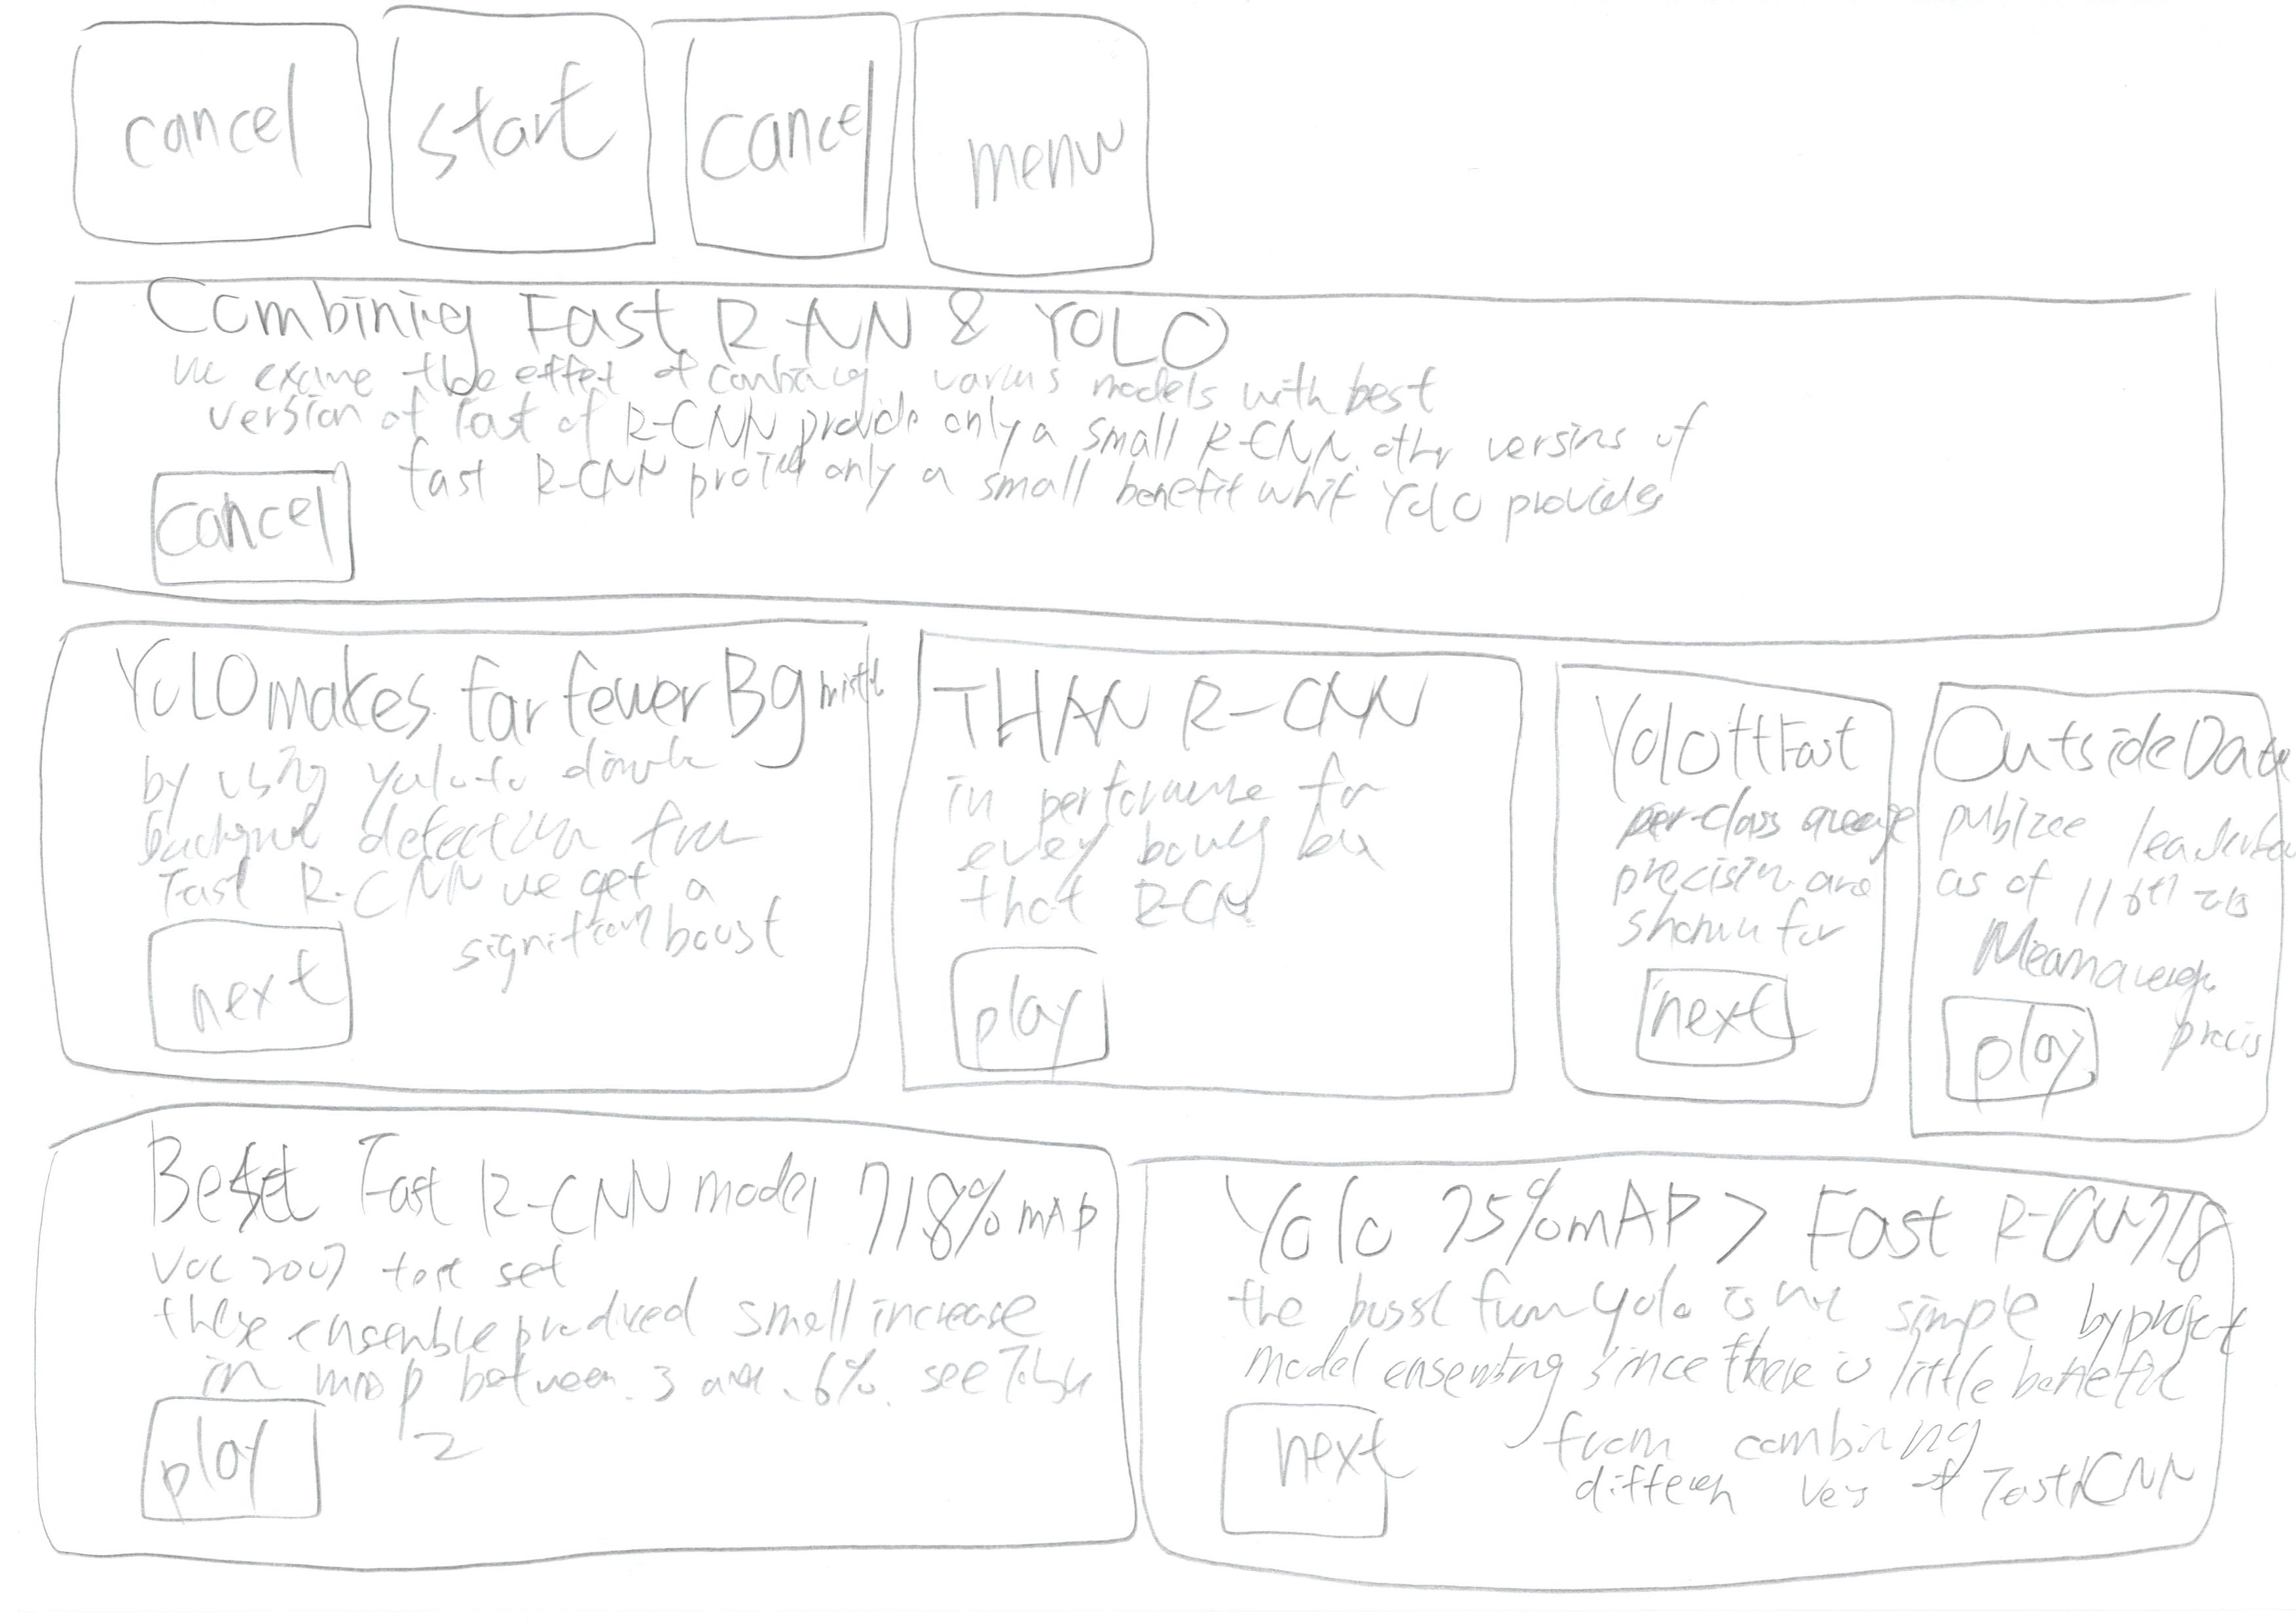 cancel
start
cancel
menu
Combining Fast R-CNN & YOLO
We examine the effect of combining various models with best
version of Fast of R-CNN provide only a small R-CNN other versions of
fast R-CNN only a small benefit YOLO provides
cancel
YOLO makes far fewer Bg
by using yolo to
detection from
Fast R-CNN we get a
significant boost
next
THAN R-CNN
in performance for
every
that R-CNN
play
Yolo Fast
per-class average
precision are
shown for
next
Outside Data
public
as of
Mean average
precis
play
Best Fast R-CNN model 718% mAP
VOC 2007 test set
these ensemble produced small increase
in map between .3 and .6% see Table
2
play
Yolo 75% mAP > Fast R-CNN 718
the from yolo is not simple
model since there is little
from combining
different of Fast RCNN
next